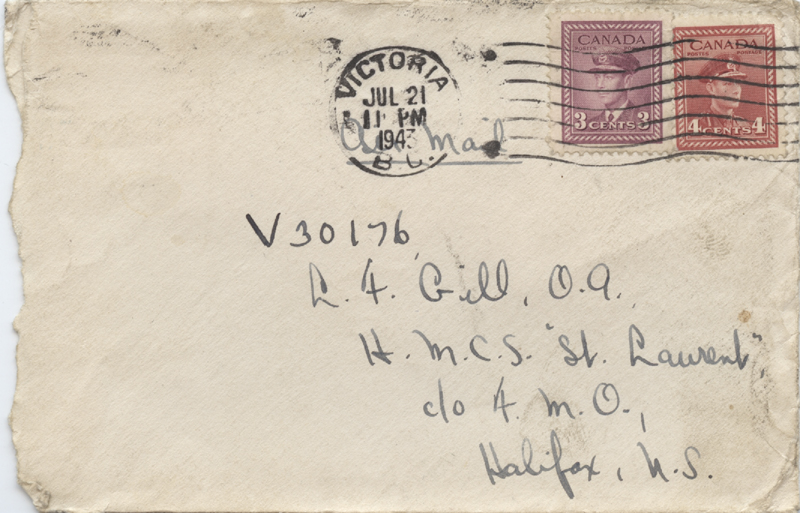 VICTORIA
JUL 21
11 PM
1943
B.C.
Air Mail
CANADA
POSTES POSTAGE
3 CENTS 3
CANADA
POSTES POSTAGE
4 CENTS 4
V30176
L. F. Gill, O.A.
H.M.C.S. "St. Laurent"
c/o F.M.O.,
Halifax, N.S.